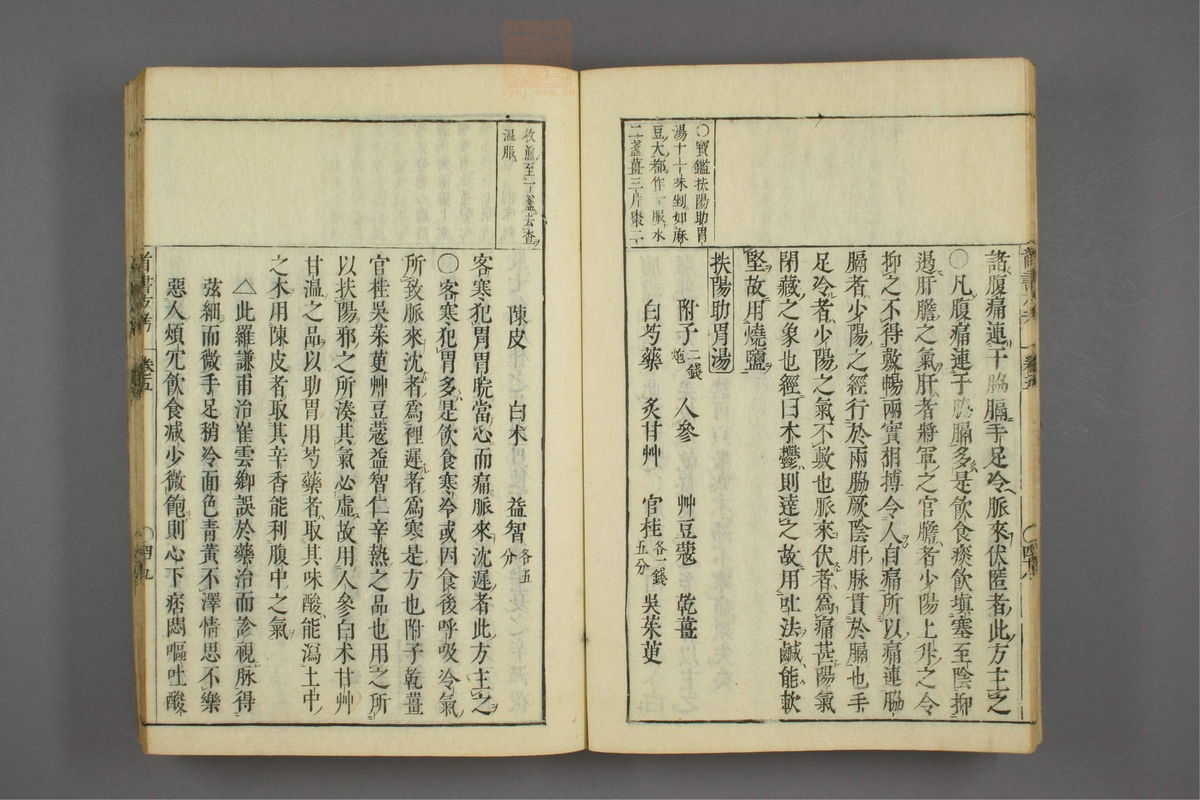 諸腹痛連于脇膈手足冷脈來伏匿者此方主之
〇凡腹痛連于脇膈多是飲食痰飲填塞至陰抑
遏肝膽之氣肝者將軍之官膽者少陽上升之令
抑之不得敷暢兩實相搏令人自痛所以痛連脇
膈者少陽之經行於兩脇厥陰肝脈貫於膈也手
足冷者少陽之氣不敷也脈來伏者為痛甚陽氣
閉藏之象也經曰木鬱則達之故用吐法鹹能軟
堅故用燒鹽
扶陽助胃湯
附子 二錢炮 人參 艸豆蔻 乾薑
白芍藥 炙甘艸 官桂 各一錢五分 吳茱萸
〇寶鑑扶陽助胃
湯十一味剉如麻
豆大都作一服水
二盞薑三片棗二
枚煎至一盞去查
溫服
陳皮 白术 益智 各五分
客寒犯胃胃脘當心而痛脈來沈遲者此方主之
〇客寒犯胃多是飲食寒冷或因食後呼吸冷氣
所致脈來沈者為裡遲者為寒是方也附子乾薑
官桂吳茱萸艸豆蔻益智仁辛熱之品也用之所
以扶陽邪之所湊其氣必虛故用人參白术甘艸
甘溫之品以助胃用芍藥者取其味酸能瀉土中
之木用陳皮者取其辛香能利腹中之氣
△此羅謙甫治崔雲卿誤於藥治而診視脉得
弦細而微手足稍冷面色青黃不澤情思不樂
惡人煩冗飲食減少微飽則心下痞悶嘔吐酸
卷五
〇四九